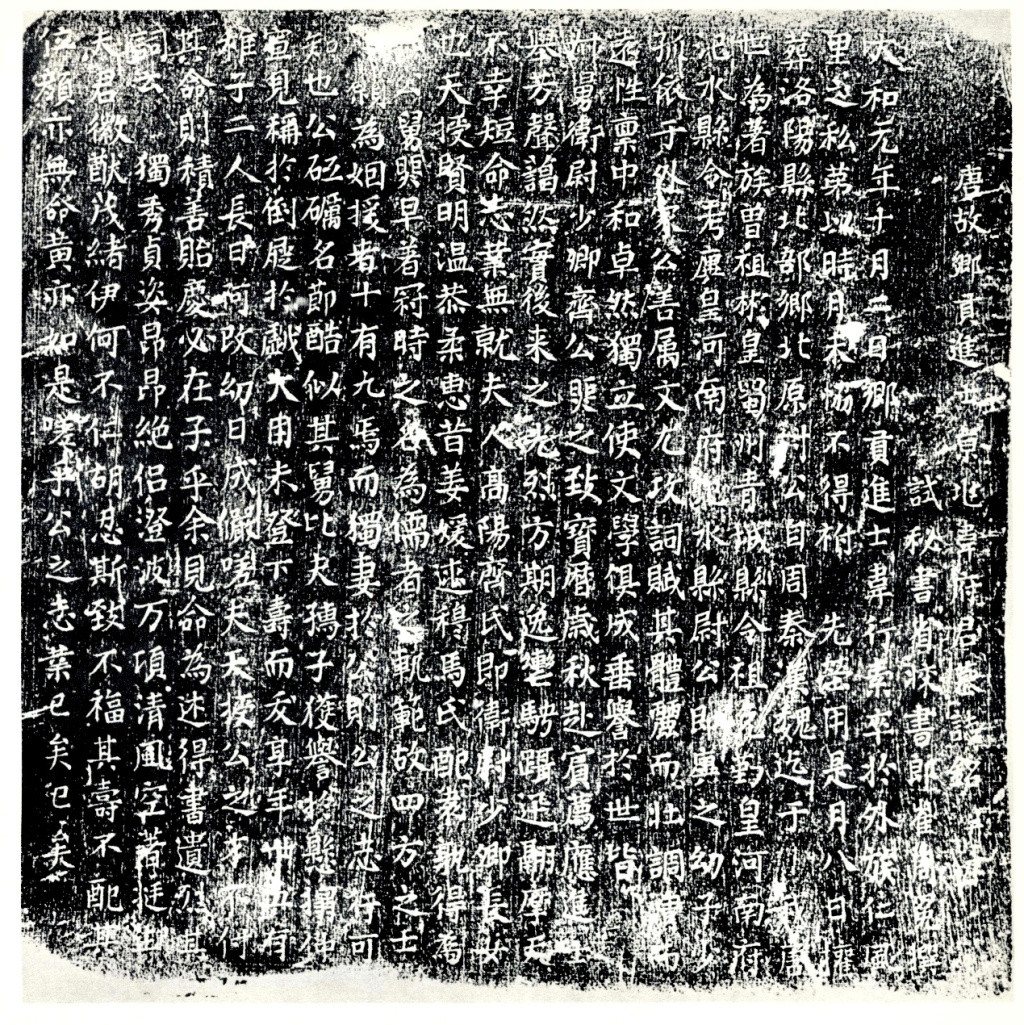 唐故鄉貢進士京兆韋府君墓誌銘
試秘書省校書郎崔周冕撰
大和元年十月二日鄉貢進士韋行素卒於外族仁風
里之私第以時月未協不得祔 先塋用是月八日權
葬洛陽縣北部鄉北原州公自周秦漢魏迄于 我唐
世為著族曾祖彬皇蜀州青城縣令祖 皇河南府
汜水縣令考 皇河南府汜水縣尉公即 之幼子少
孤依于外家公善属文尤攻詞賦其體麗而壯調 而
遠性稟中和卓然獨立使文學俱成垂譽於世皆
舅衛尉少卿齊公 之致寶曆歲秋赴賓薦應進士
舉芳聲謁然實後来之光烈方期逸 騁躍迅翮摩天
不幸短命志業無就夫人高陽齊氏即衛尉少卿長女
也天授賢明温恭柔恵昔姜嫄 穆馬氏配 得為
舅 早著冠時之 為儒者之軌範故四方之士
願為姻援者十有九焉而獨妻於公則公之志行可
知也公砥礪名節酷似其舅比夫 子獲譽於
見稱於倒屣於戲大用未登下壽而夭享年卅五有
稚子二人長曰何改幼曰成儼嗟夫天授公之才不付
其命則積善貽慶必在子乎余見命為述得書遺烈其
詞云 獨秀貞姿昂昂絶侣澄波万頃清風空 挺
夫君徽猷茂緒伊何不仁胡忍斯致不福其壽不配其
位顔亦無命黃亦如是嗟乎公之志業已矣已矣